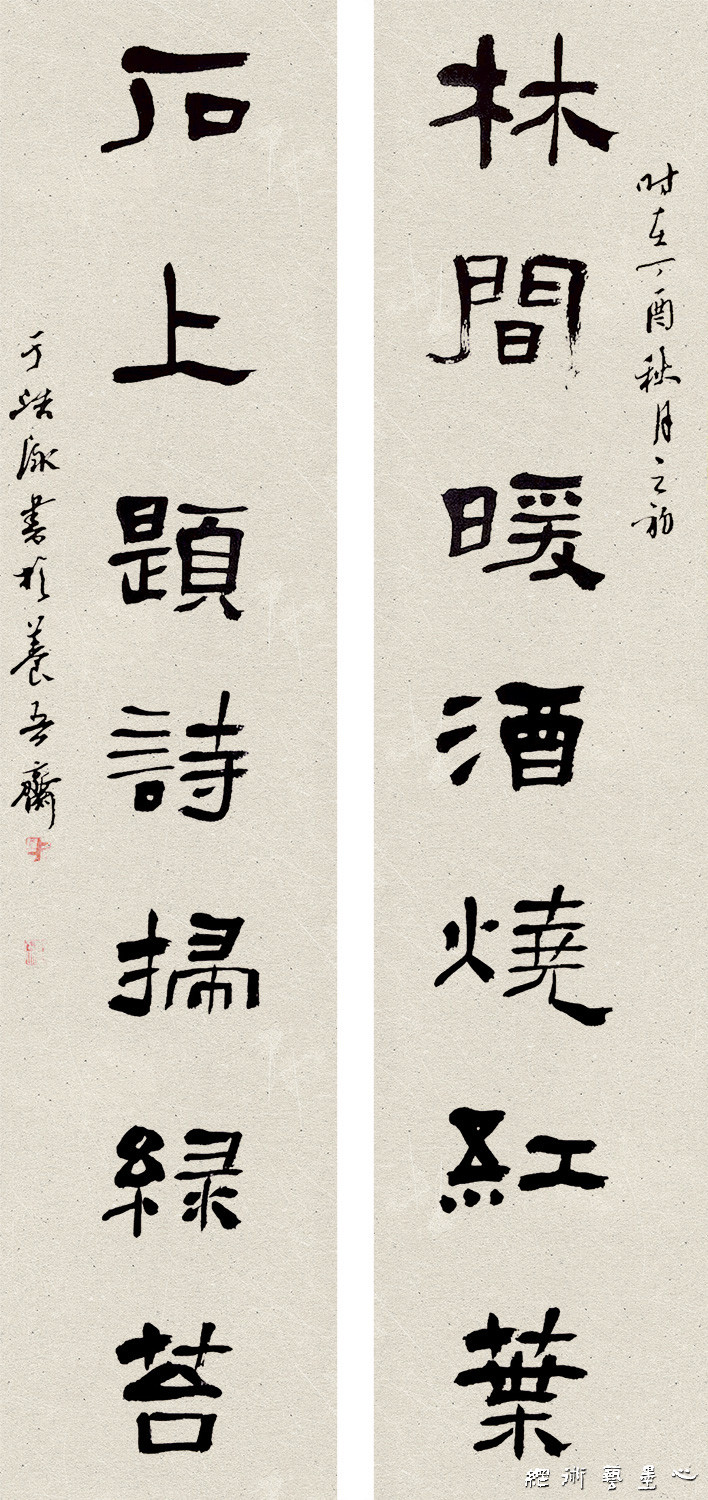 林間暖酒燒紅葉
時在丁酉秋月之初
石上題詩掃綠苔
于浩泳書於養吾齋
心墨藝術經